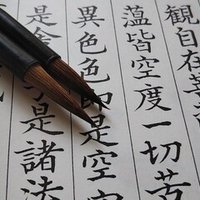 観自在菩
薀皆空度一切苦
異色色即是空
是舎子是諸法